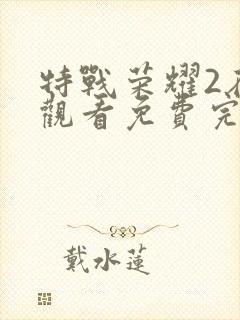 特戰荣耀2
觀看免費完
戴水蓮